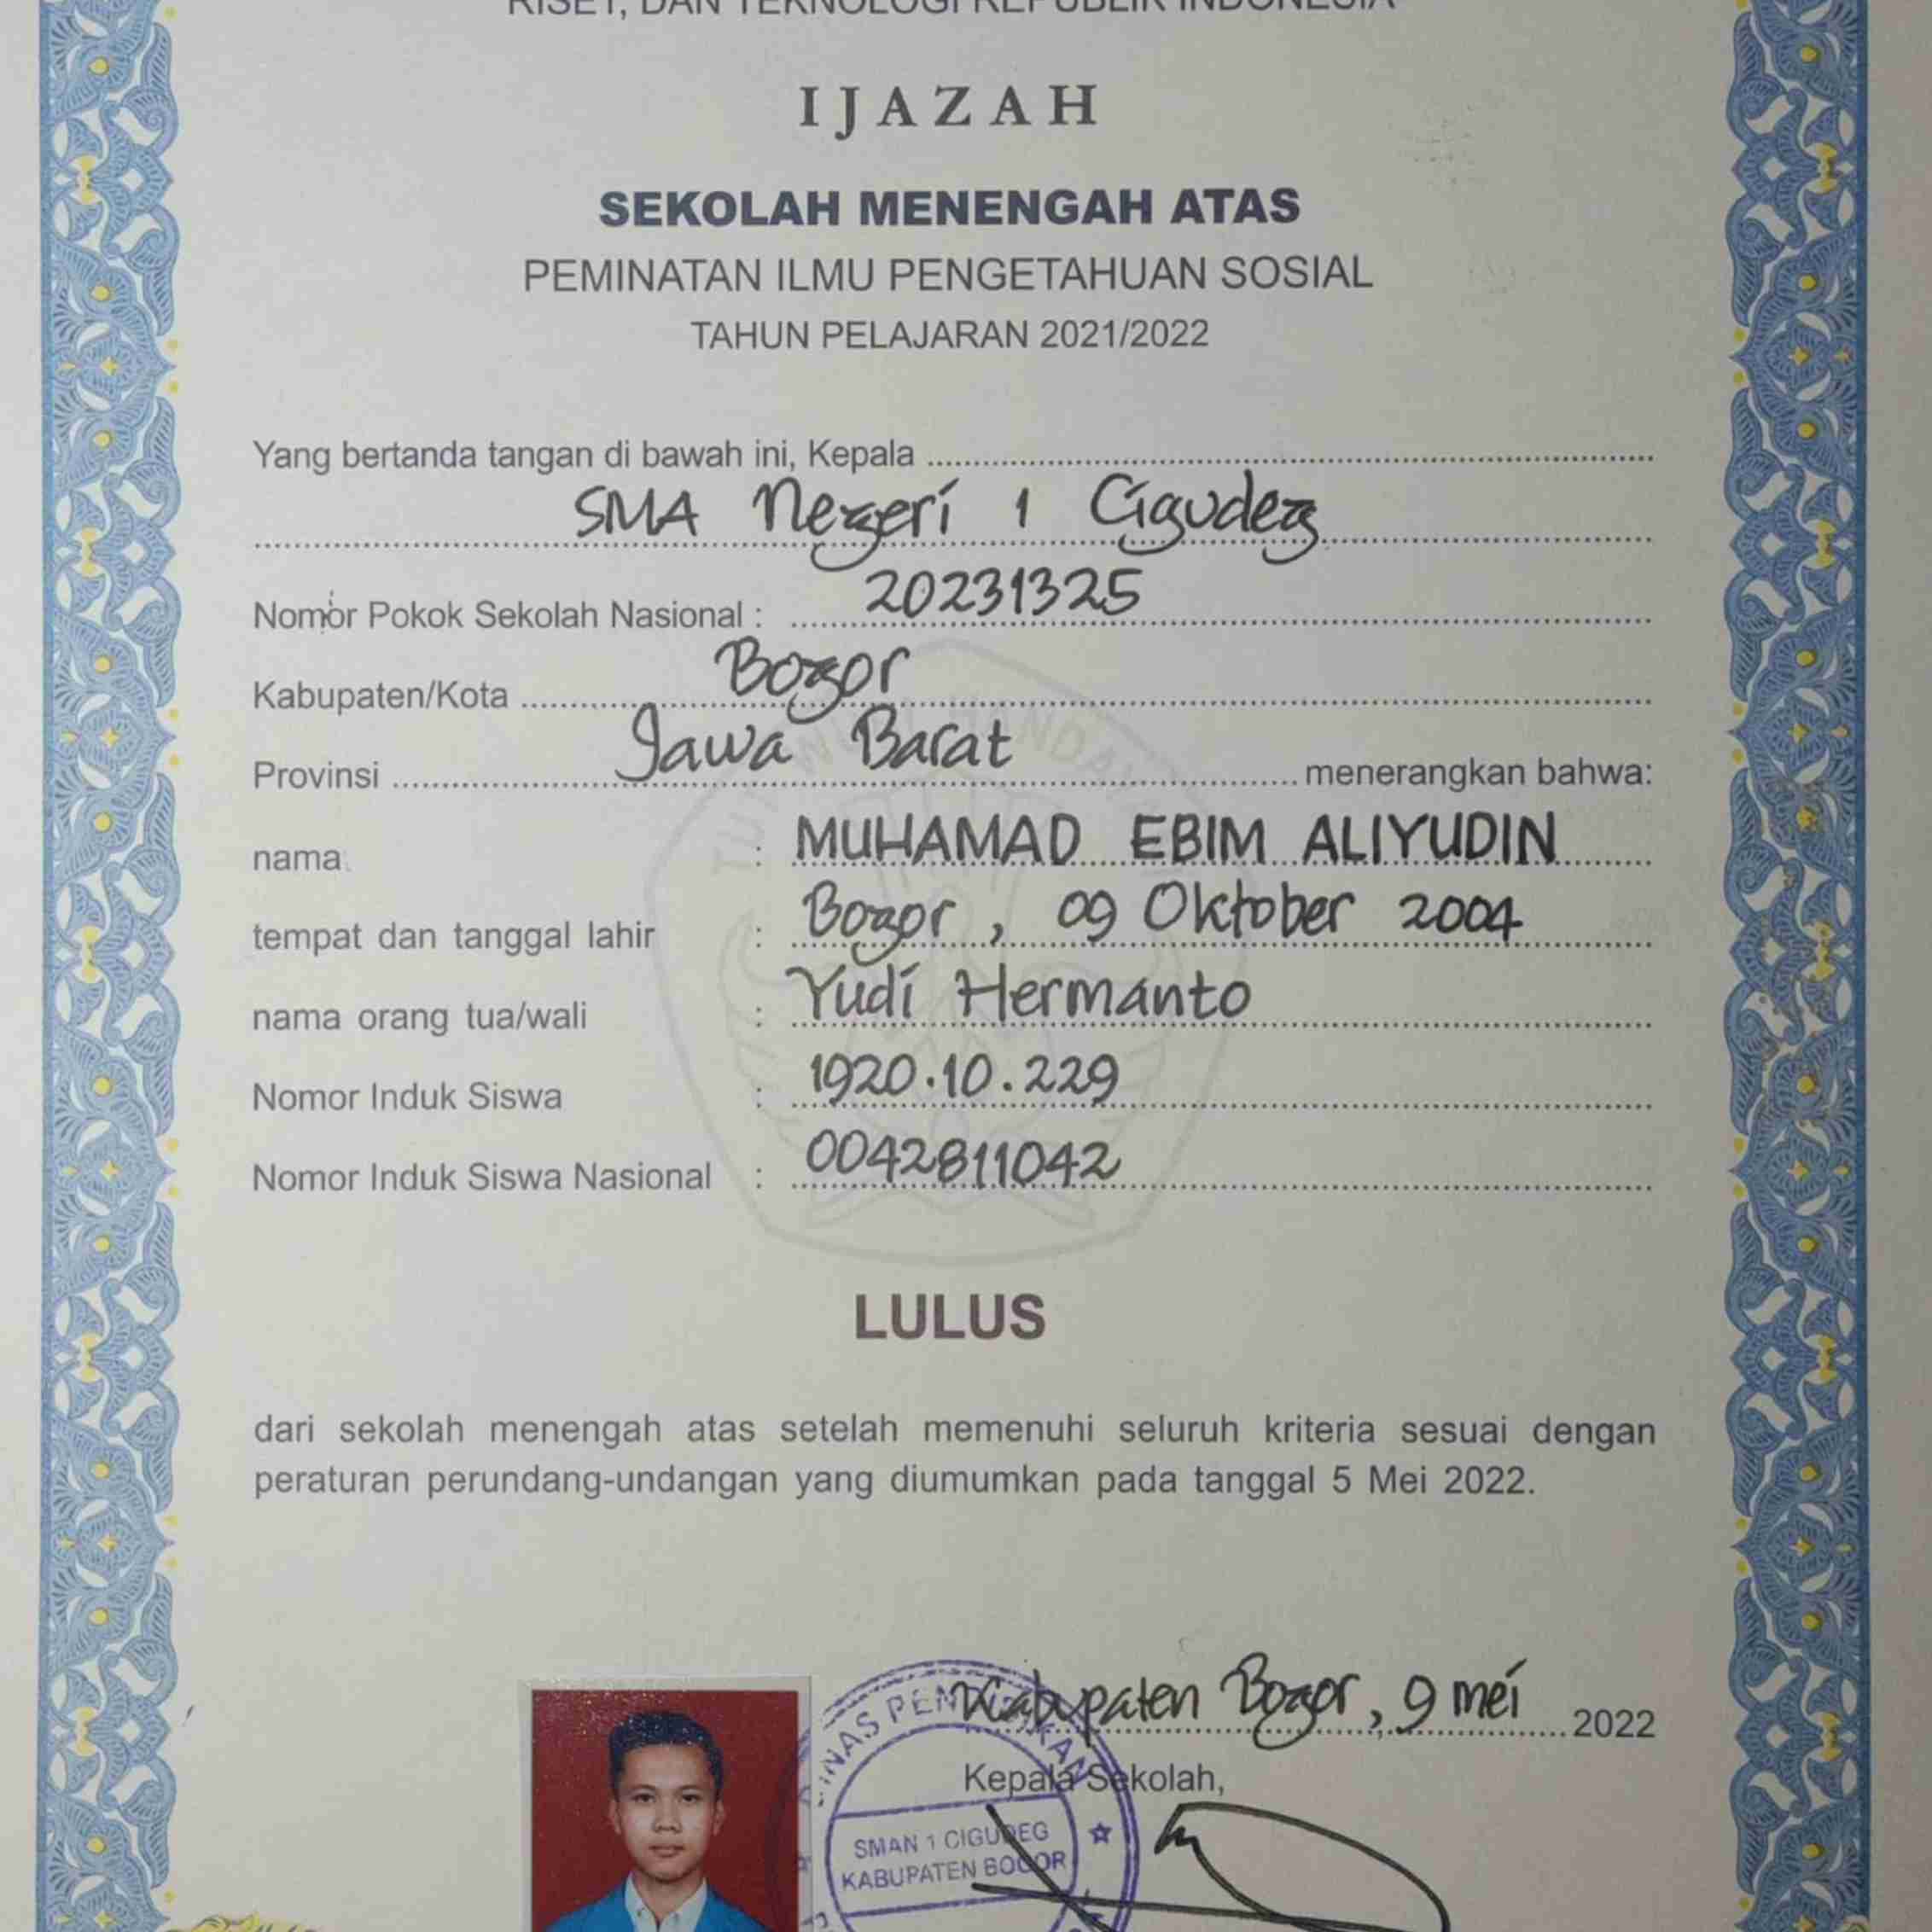 RISET, DAN TEKNOLOGI REPUBLIK INDONESIA
IJAZAH
SEKOLAH MENENGAH ATAS
PEMINATAN ILMU PENGETAHUAN SOSIAL
TAHUN PELAJARAN 2021/2022
Yang bertanda tangan di bawah ini, Kepala
SMA Negeri 1 Cigudeg
Nomor Pokok Sekolah Nasional : 20231325
Kabupaten/Kota Bogor
Provinsi Jawa Barat menerangkan bahwa:
nama : MUHAMAD EBIM ALIYUDIN
tempat dan tanggal lahir : Bogor, 09 Oktober 2004
nama orang tua/wali : Yudi Hermanto
Nomor Induk Siswa : 1920.10.229
Nomor Induk Siswa Nasional : 0042811042
LULUS
dari sekolah menengah atas setelah memenuhi seluruh kriteria sesuai dengan
peraturan perundang-undangan yang diumumkan pada tanggal 5 Mei 2022.
Kabupaten Bogor, 9 mei 2022
Kepala Sekolah,
DINAS PENDIDIKAN
SMAN 1 CIGUDEG
KABUPATEN BOGOR